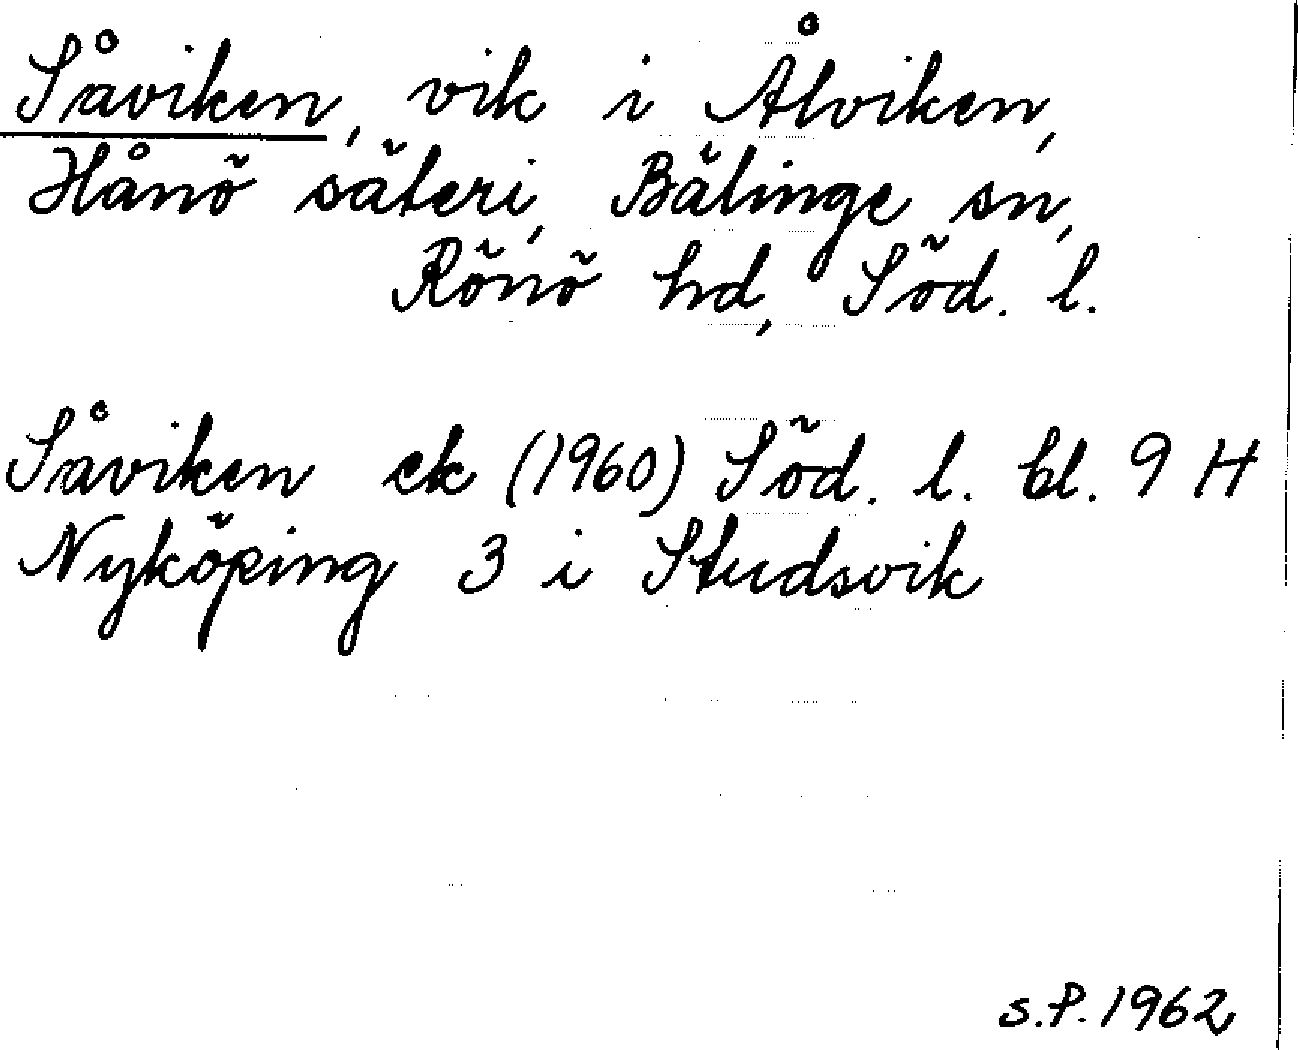 Såviken, vik i Ålviken,
Hånö säteri, Bälinge sn,
Rönö hd, Söd. l.
Såviken ek (1960) Söd. l. bl. 9 H
Nyköping 3 i Studsvik
S.P. 1962